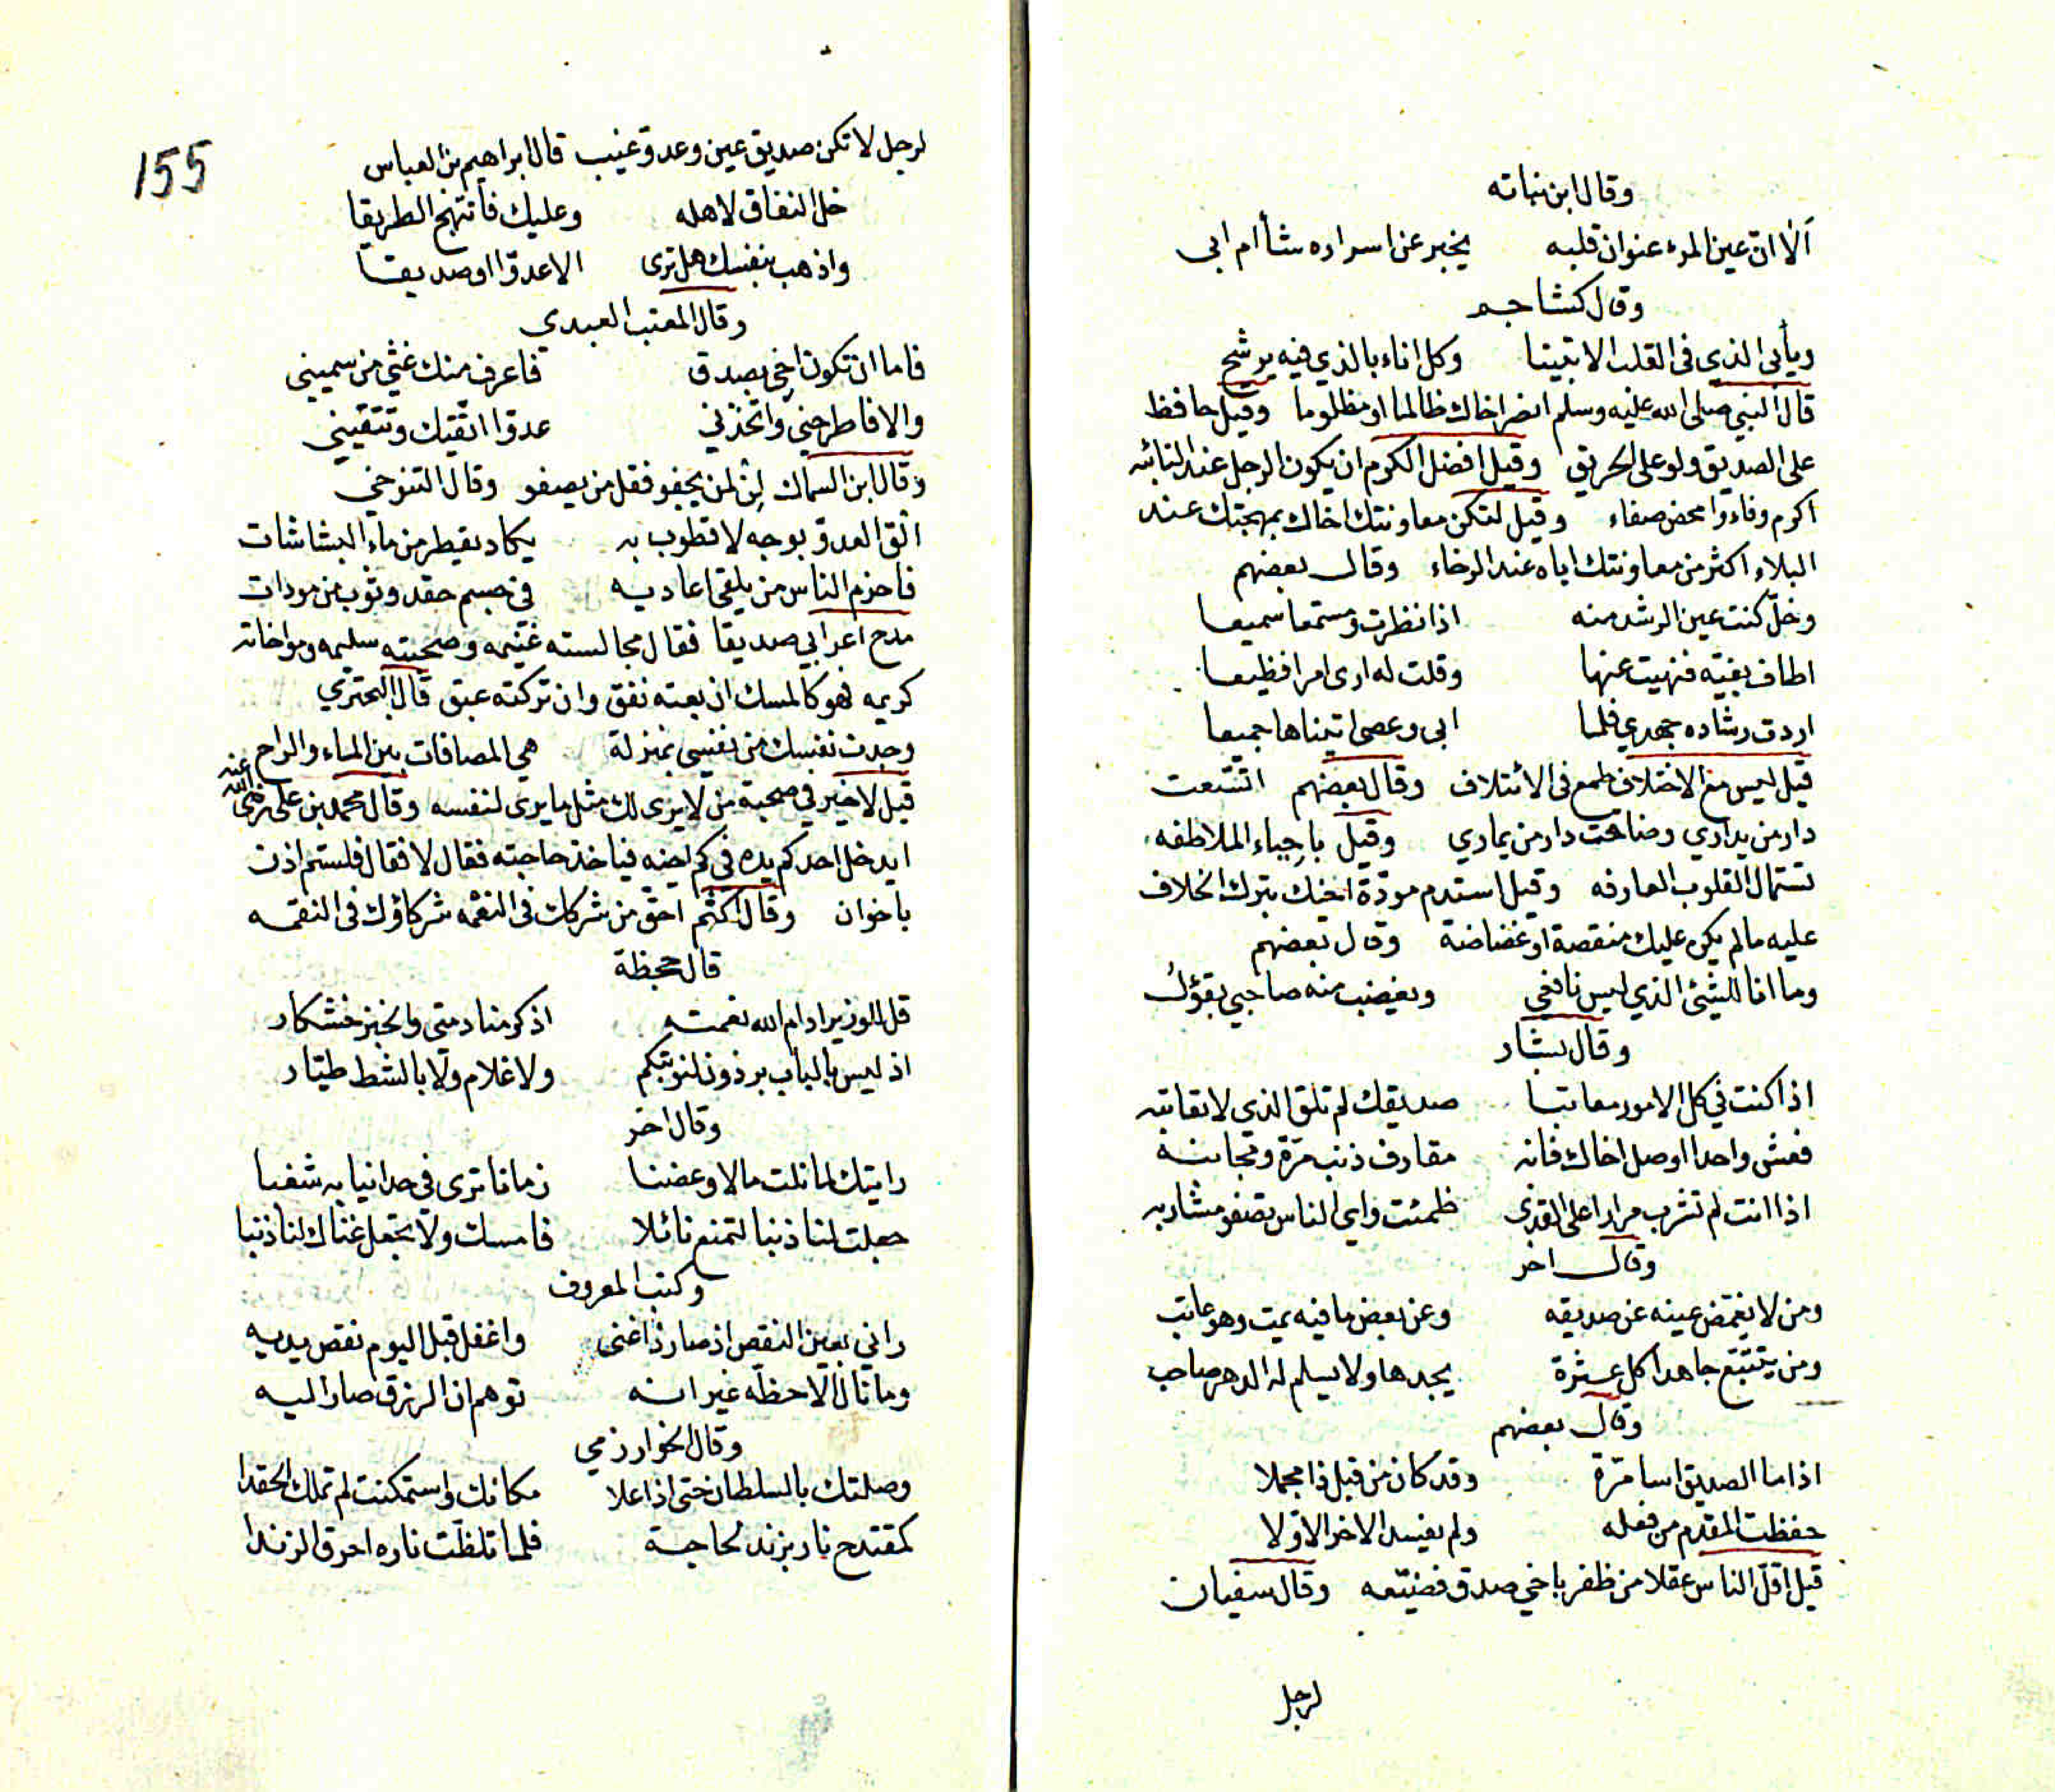 وقال ابن نباته
ألا ان عين المرء عنوان قلبه يخبر عن اسراره شأ أم ابى
وقال كشاجم
ويأبى الذي في القلب الا تبينا وكل اناء بالذي فيه يرشح
قال النبي صلى الله عليه وسلم انصر اخاك ظالما او مظلوما وقيل حافظ
على الصديق ولو على الحريق وقيل افضل الكرم ان يكون الرجل عند النائبه
اكرم وفاء وامحض صفاء وقيل لتكن معاونتك اخاك بمهجتك عند
البلاء اكثر من معاونتك اياه عند الرخاء وقال بعضهم
وخل كنت عين الرشد منه اذا نظرت ومستمعا سميعا
اطاف بغيّه فنهيت عنها وقلت له ارى امرا فظيعا
اردت رشاده جهدي فلما ابى وعصى اتيناها جميعا
قيل ليس مع الاختلاف طمع في الائتلاف وقال بعضهم اتسعت
دار من يداري وضاقت دار من يماري وقيل باجباء الملاطفه
تستمال القلوب العارفه وقيل استدم مودّة اخيك بترك الخلاف
عليه مالم يكن عليك منقصة او غضاضة وقال بعضهم
وما انا للشئ الذي ليس نافعي ويغضب منه صاحبي بقؤل
وقال بشار
اذا كنت في كل الامور معاتبا صديقك لم تلق الذي لا تعاتبه
فعش واحدا او صل اخاك فانه مقارف ذنب مرّة ومجانبه
اذا انت لم تشرب مرارا على القذى ظمئت واي الناس تصفو مشاربه
وقال اخر
ومن لا يغمّض عينه عن صديقه وعن بعض ما فيه يمت وهو عاتب
ومن يتتبّع جاهدا كل عثرة يجدها ولا يسلم له الدهر صاحب
وقال بعضهم
اذا ما الصديق اسا مرّة وقد كان من قبل ذا مجملا
حفظت المقدم من فعله ولم يفسد الاخر الاوّلا
قيل اقلّ الناس عقلا من ظفر باخي صدق فضيّعه وقال سفيان
لرجل
155
لرجل لا تكن صديق عين وعدوّ غيب قال ابراهيم بن العباس
خل النفاق لاهله وعليك فانتهج الطريقا
واذهب بنفسك هل ترى الا عدوّا او صديقا
وقال المعتب العبدي
فاما ان تكون اخي بصدق فاعرف منك غثي من سميني
والا فاطرحني واتخذني عدوّا اتقيك وتتقيني
وقال ابن السماك لِنْ لمن يجفو فقل من يصفو وقال التنوخي
القَ العدوّ بوجه لا قطوب به يكاد يقطر من ماء البشاشات
فاحزم الناس من يلقى اعاديه في جسم حقد وثوب من مودات
مدح اعرابي صديقا فقال مجالسته غنيمه وصحبته سليمه ومواخاته
كريمه فهو كالمسك ان بعته نفق وان تركته عبق قال البحتري
وجدت نفسك من نفسي بمنزلة هي المصافات بين الماء والراح
قيل لا خير في صحبة من لا يرى لك مثل ما يرى لنفسه وقال محمد بن علي رضى الله عنه
ايدخل احدكم يده في كم اخيه فياخذ حاجته فقال لا فقال فلستم اذن
باخوان وقال اكثم احق من شركك في النعمه شركاؤك في النقمه
قال جحظة
قل للوزير ادام الله نعمته اذكر منادمتي والخبز خشكار
اذ ليس بالباب برذون لنوبتكم ولا غلام ولا بالشط طيّار
وقال اخر
رايتك لما نلت مالا وعضنا زمان ترى في حد انيابه شغبا
جعلت لنا ذنبا لتمنع نائلا فامسك ولا تجعل غناك لنا ذنبا
وكتب المعروف
راني بعين النقص اذ صار ذا غنى واغفل قبل اليوم نقص يديه
وما نال الّا حظّه غير انه توهم ان الرزق صار اليه
وقال الخوارزمي
وصلتك بالسلطان حتى اذا علا مكانك واستمكنت لم تملك الحقدا
كمقتدح نار بزند لحاجة فلما تلظّت ناره احرق الزندا